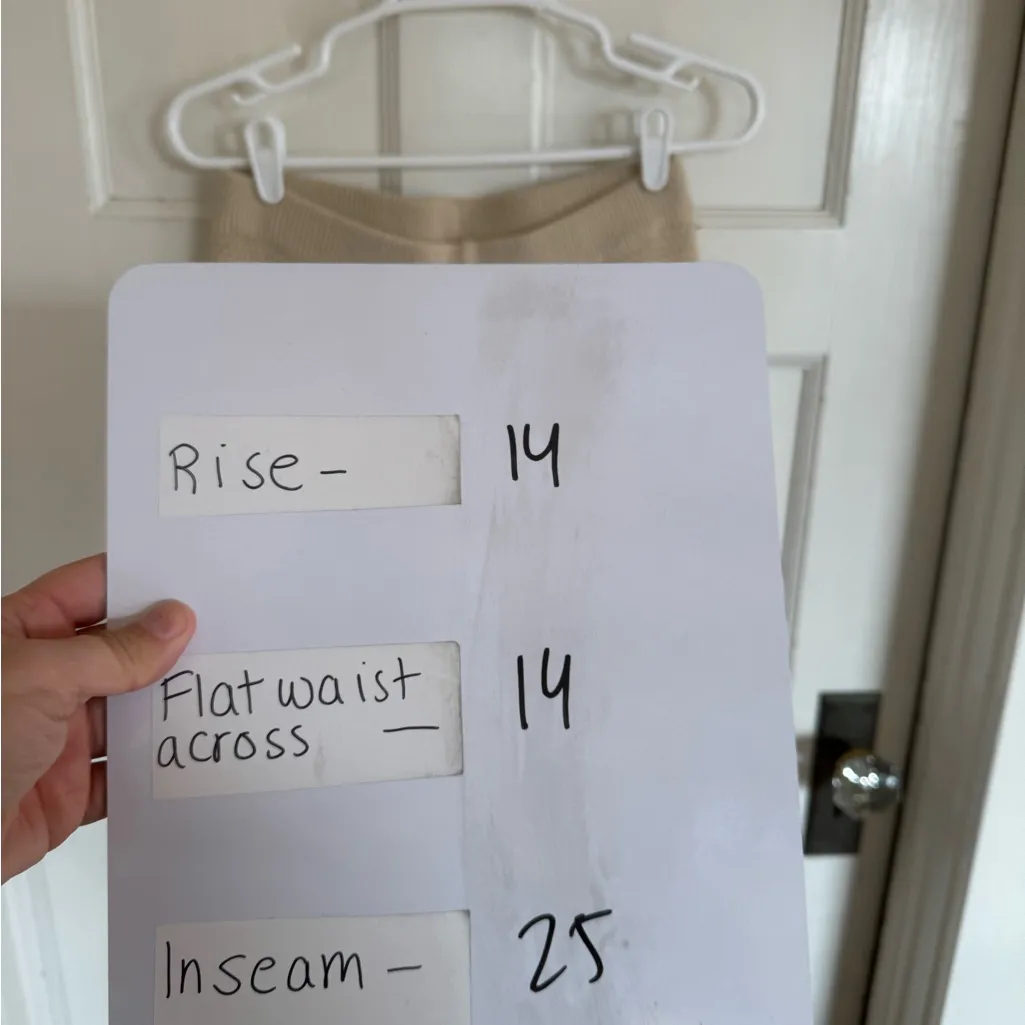 Rise - 14
Flat waist
across - 14
Inseam - 25